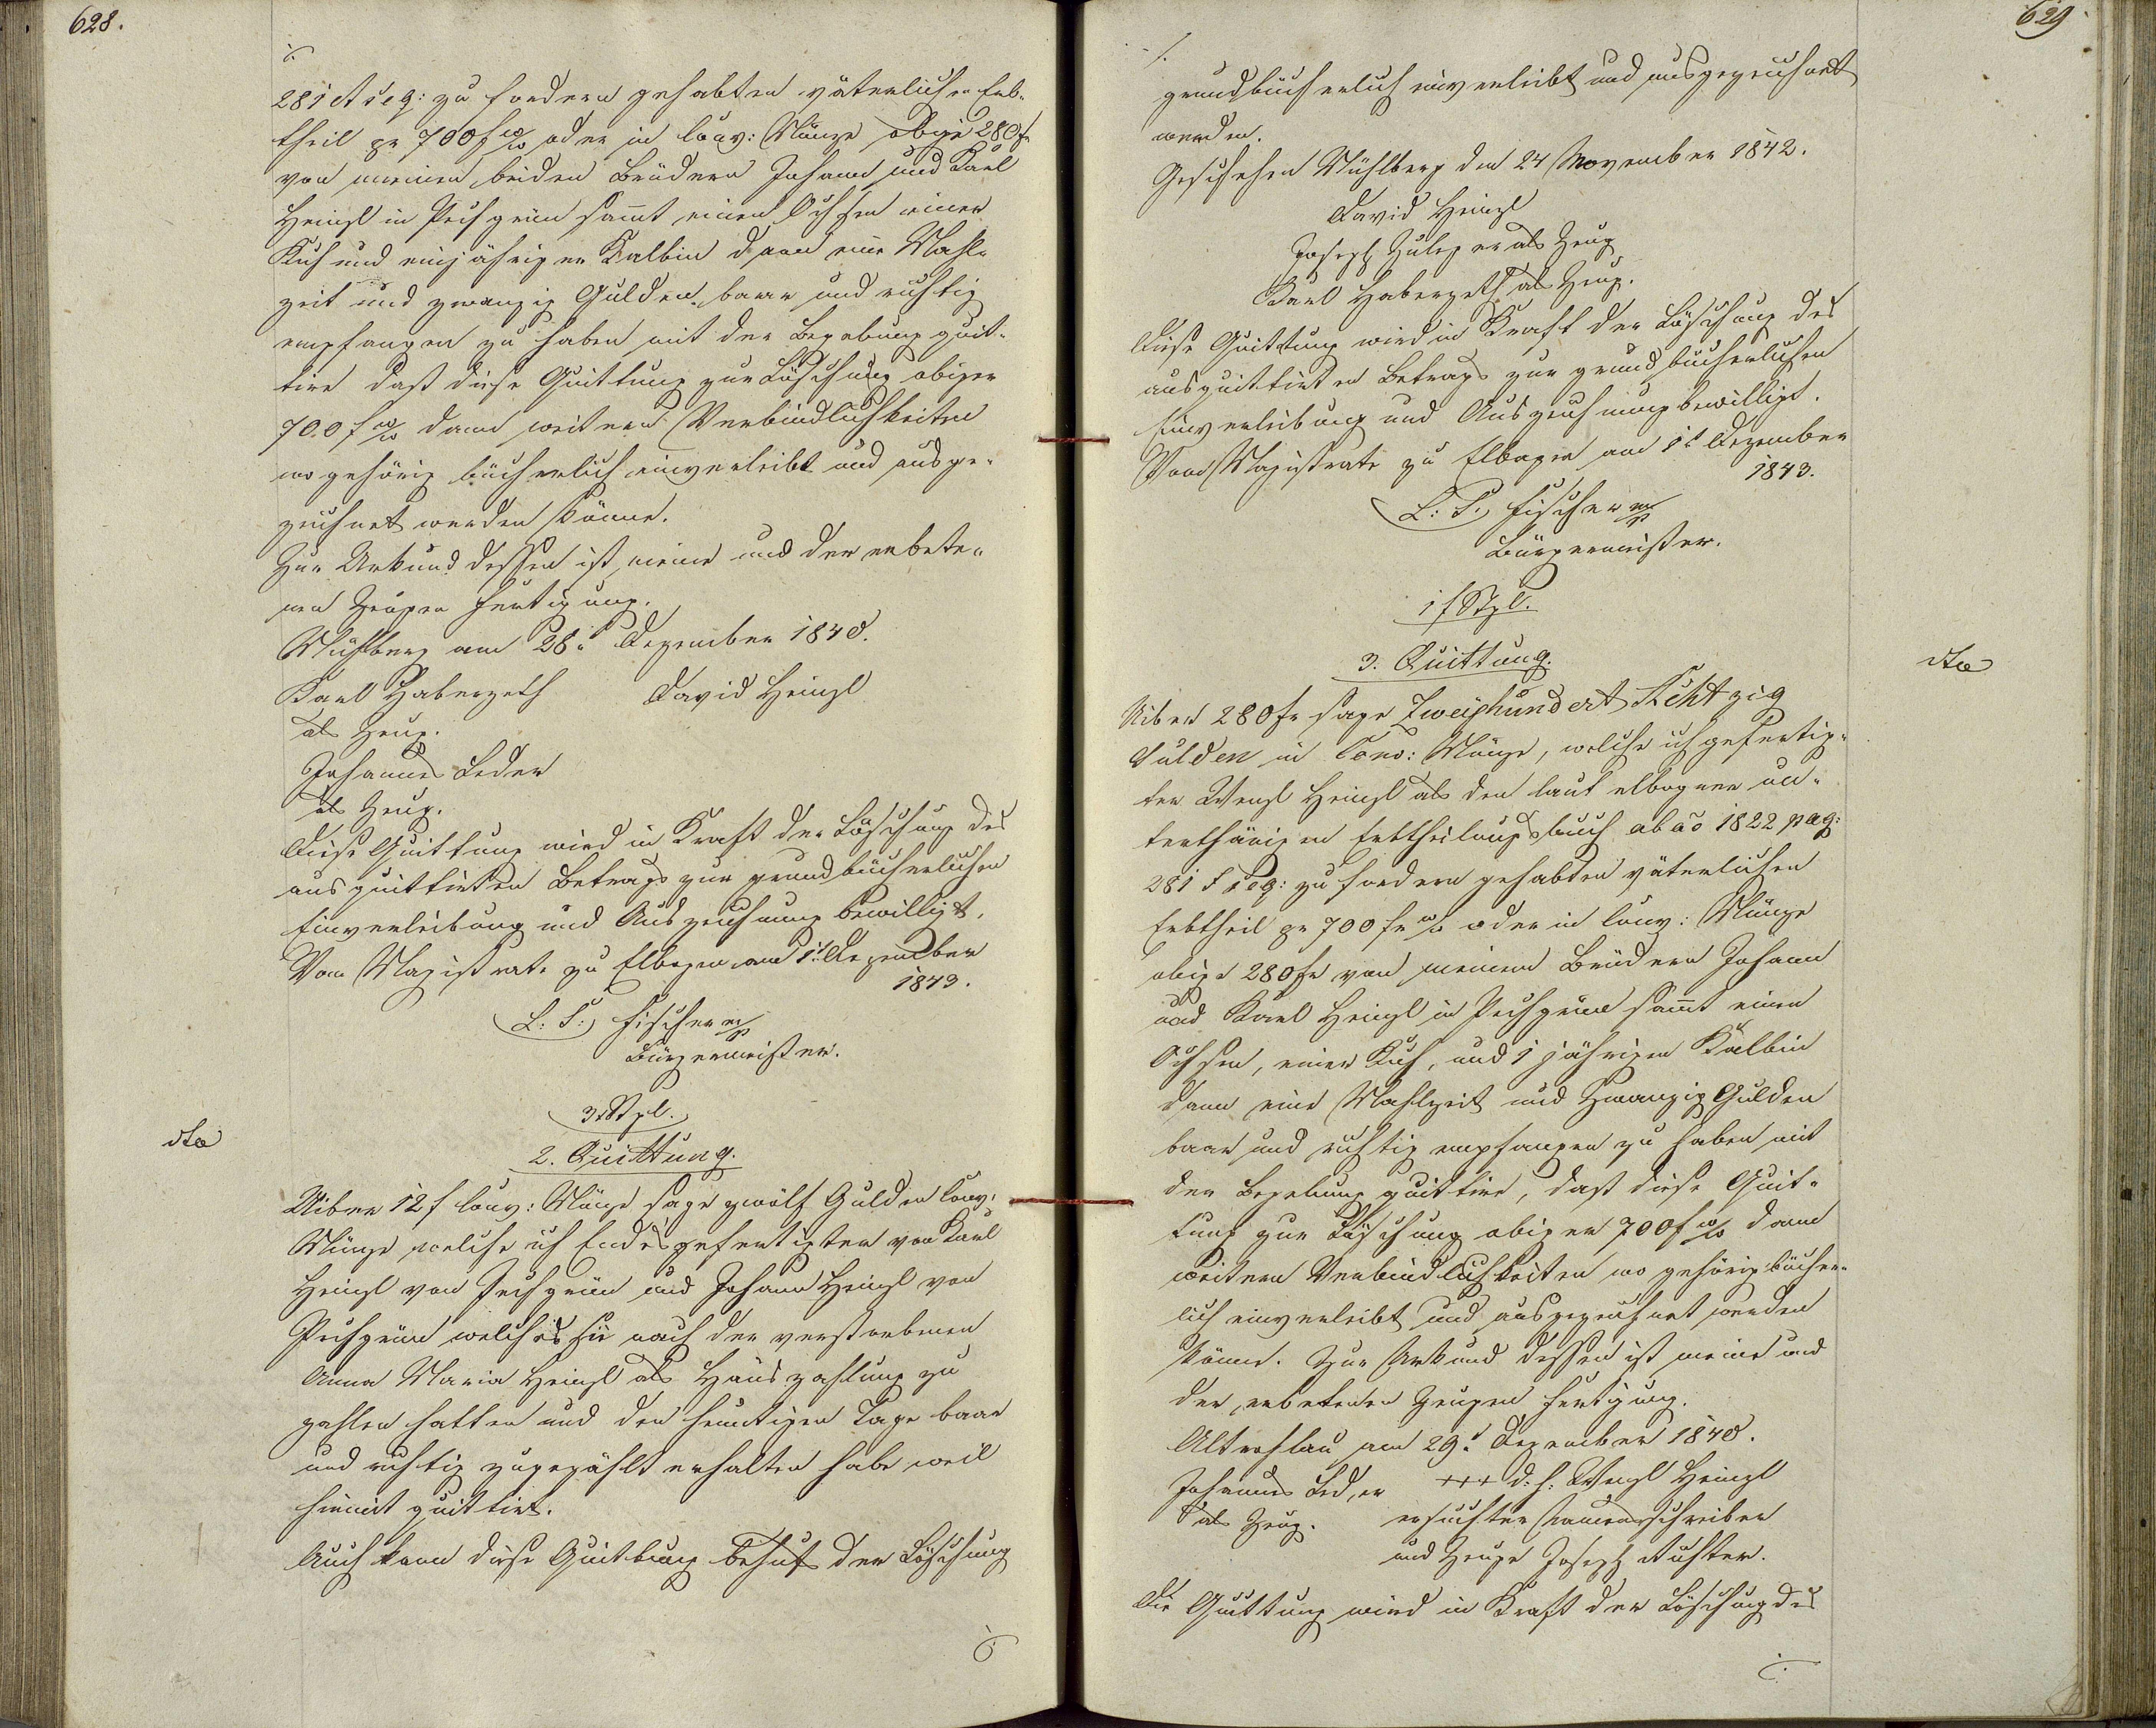 628.
281 et seq: zu fordern gehabten väterlichen Erb-
theil pr 700 f W/W oder in Conv: Münze obige 280 fr
von meinen beiden Brüdern Johann und Karl
Heinzl in Pechgrün sammt einen Ochsen einer
Kuh und einjähriger Kalbin dann eine Mahl-
zeit und zwanzig Gulden baar und richtig
empfangen zu haben mit der Begebung quit-
tire daß diese Quittung zur Löschung obiger
700 f W/W dann weitern Verbindlichkeiten
wo gehörig bücherlich einverleibt und ausge-
zeichnet werden könne.
Zur Urkund dessen ist meine und der erbete-
nen Zeugen Fertigung.
Mühlberg am 28t Dezember 1840.
Karl Haberzeth David Heinzl
als Zeug.
Johannes Leder
als Zeug.
Diese Quittung wird in Kraft der Löschung des
ausquittirten Betrags zur grundbücherlichen
Einverleibung und Auszeichnung bewilligt.
Vom Magistrate zu Elbogen am 1t Dezember
1843.
(L: S:) Fischer mp
Bürgermeister.
3x Stpl.
dto
2. Quittung.
Uiber 12 f Conv: Münze sage zwölf Gulden Conv:
Münze welche ich Endesgefertigter von Karl
Heinzl von Pechgrün und Johann Heinzl von
Pechgrün welches sie nach der verstorbenen
Anna Maria Heinzl als Hauszahlung zu
zahlen hatten und den heuntigen Tage baar
und richtig zugezählt erhalten habe weil
hiemit quittirt.
Auch kann diese Quittung behufs der Löschung
629.
grundbücherlich einverleibt und ausgezeichnet
werden.
Geschehen Mühlberg den 24 November 1842.
David Heinzl
Joseph Zuleger als Zeug
Karl Haberzeth als Zeug.
Diese Quittung wird in Kraft der Löschung des
ausquittirten Betrags zur grundbücherlichen
Einverleibung und Auszeichnung bewilligt.
Vom Magistrate zu Elbogen am 1t Dezember
1843.
(L: S.) Fischer mp
Bürgermeister.
1 f Stpl.
3. Quittung.
dto
Uiber 280 fr sage Zweyhundert Achtzig
Gulden in Conv: Münze, welche ich gefertig-
ter Wenzl Heinzl als den laut elbogner un-
terthänigen Erbtheilungsbuch ab ao 1822 pag:
281 f seq: zu fordern gehabten väterlichen
Erbtheil pr 700 fr W/W oder in Conv: Münze
obige 280 fr von meinen Brüdern Johann
und Karl Heinzl in Pechgrün sammt einen
Ochsen, einer Kuh, und 1 jährigen Kalbin
dann eine Mahlzeit und Zwanzig Gulden
baar und richtig empfangen zu haben mit
der Begebung quittire, daß diese Quit-
tung zur Löschung obiger 700 f W/W dann
weitern Verbindlichkeiten wo gehörig bücher-
lich einverleibt und ausgezeichnet werden
könne. Zur Urkund dessen ist meine und
der erbetenen Zeugen Fertigung.
Altrohlau am 29t Dezember 1840.
Johannes Leder +++ d. h: Wenzl Heinzl
als Zeug. ersuchter Namensschreiber
und Zeuge Joseph Richter.
Die Quittung wird in Kraft der Löschung des